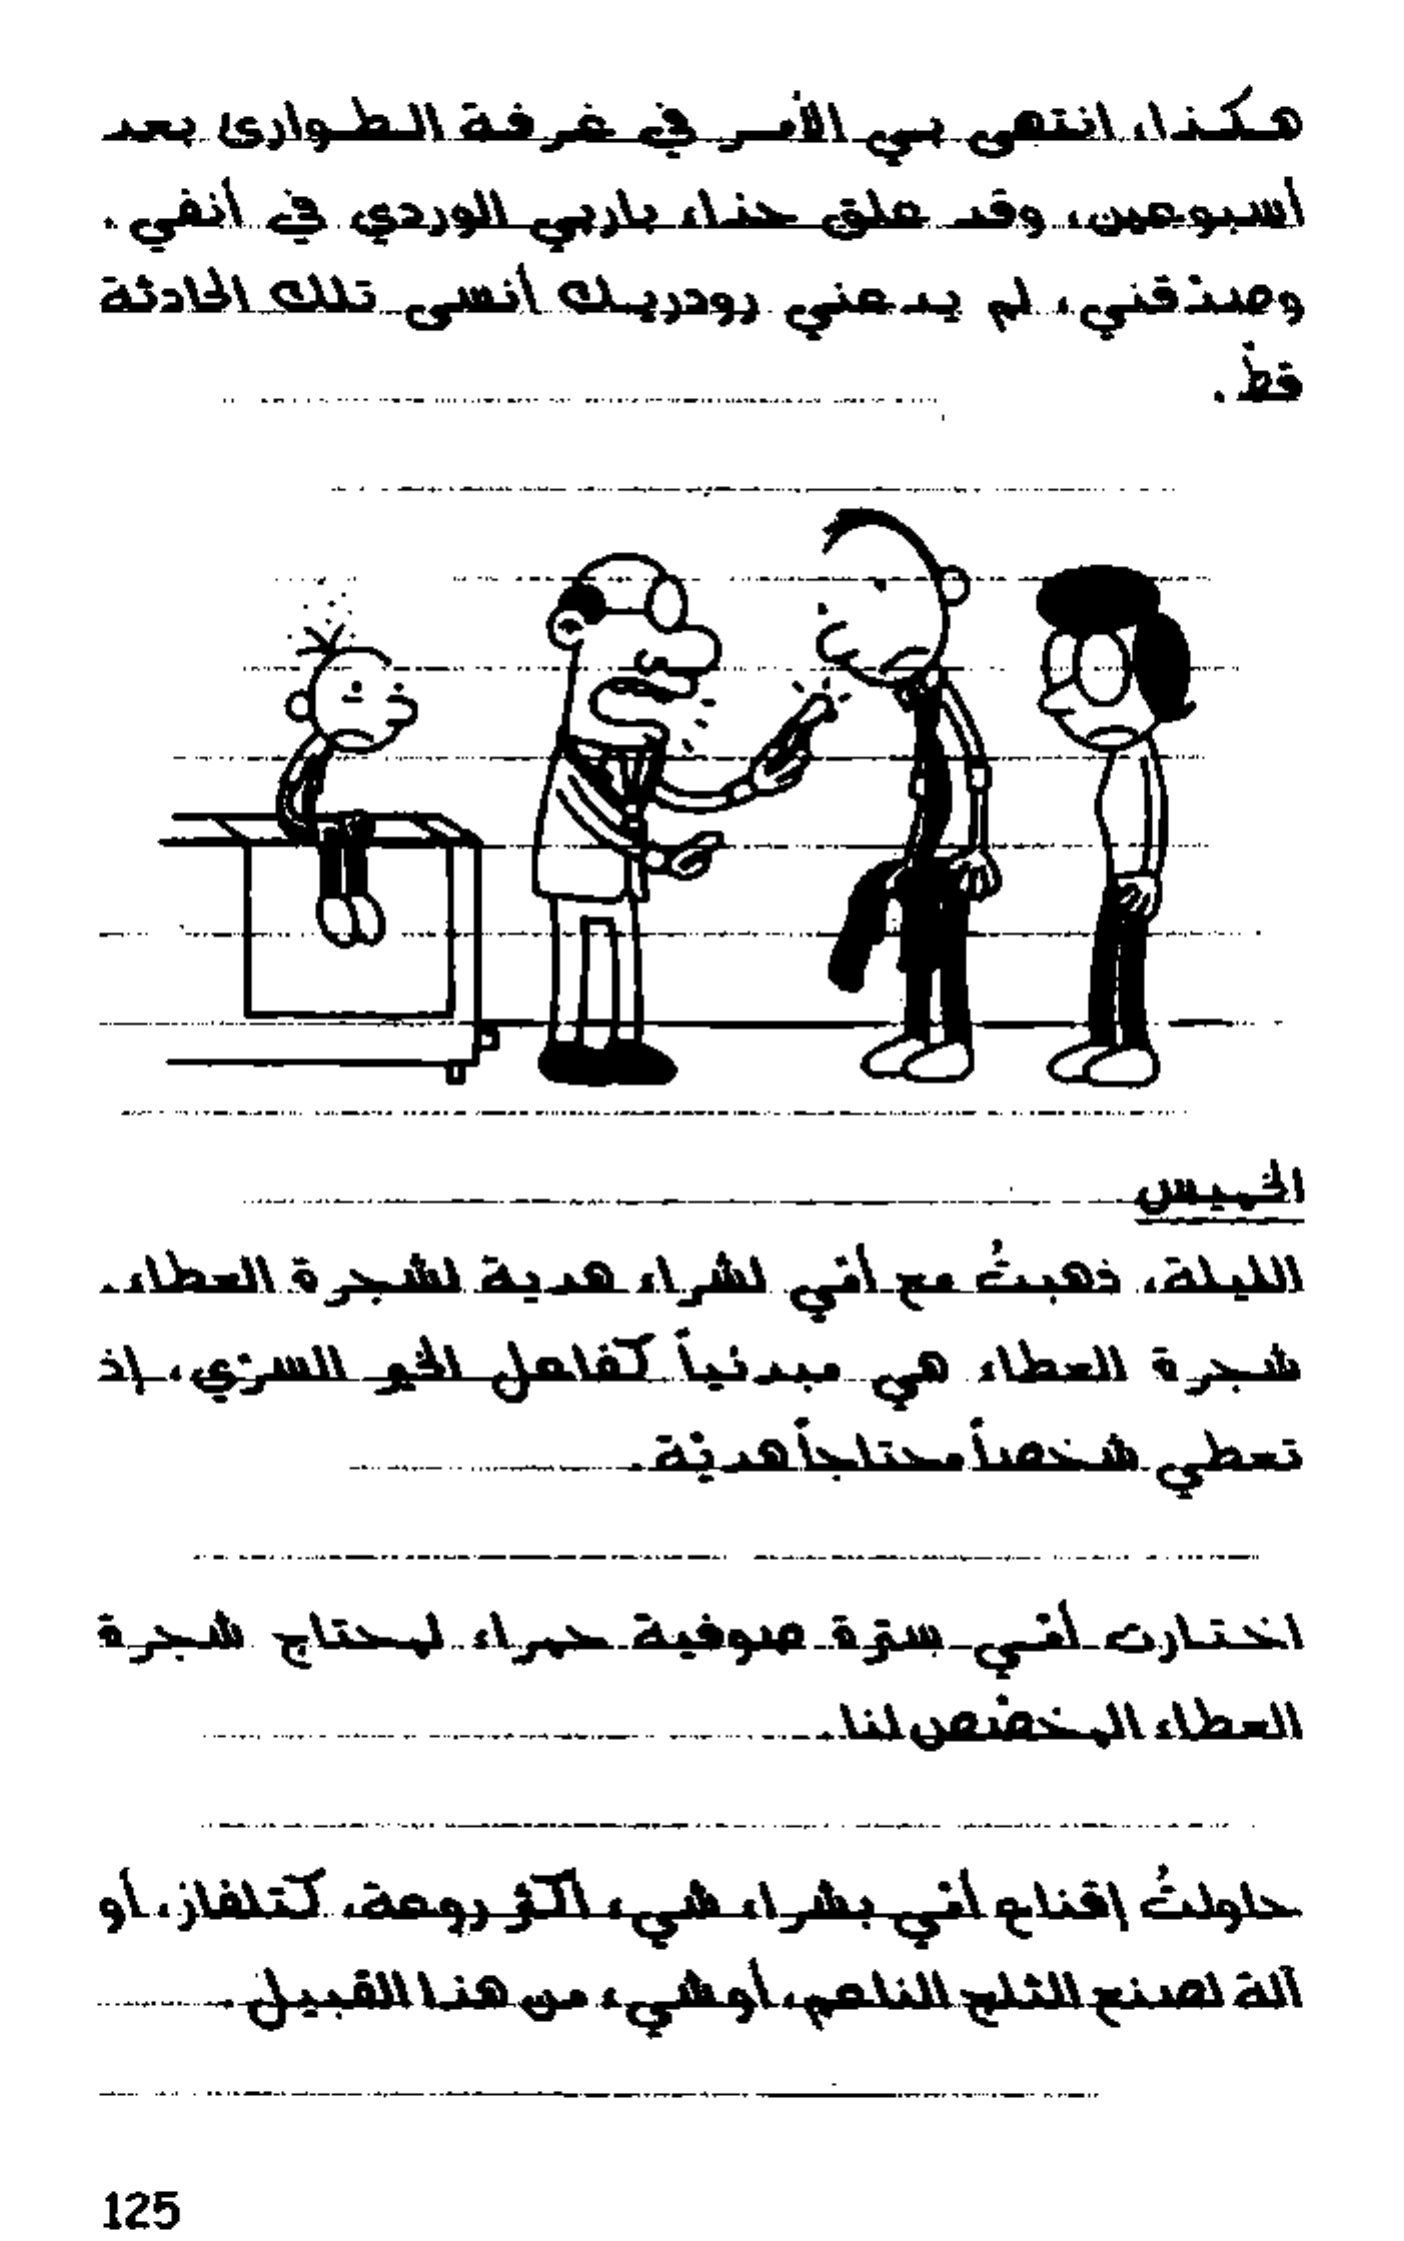 هكذا، انتهى بي الأمر في غرفة الطوارئ بعد
أسبوعين، وقد علق حذاء باربي الوردي في أنفي.
وصدّقني، لم يدعني رودريك أنسى تلك الحادثة
قطّ.
الخميس
الليلة، ذهبتُ مع أمّي لشراء هدية لشجرة العطاء.
شجرة العطاء هي مبدئياً كفاعل الخير السرّي، إذ
تعطي شخصاً محتاجاً هديّة.
اختارت أمّي سترة صوفية حمراء لمحتاج شجرة
العطاء المخصّص لنا.
حاولتُ إقناع أمّي بشراء شيء أكثر روعة، كتلفاز، أو
آلة لصنع الثلج الناعم، أو شيء من هذا القبيل.
125